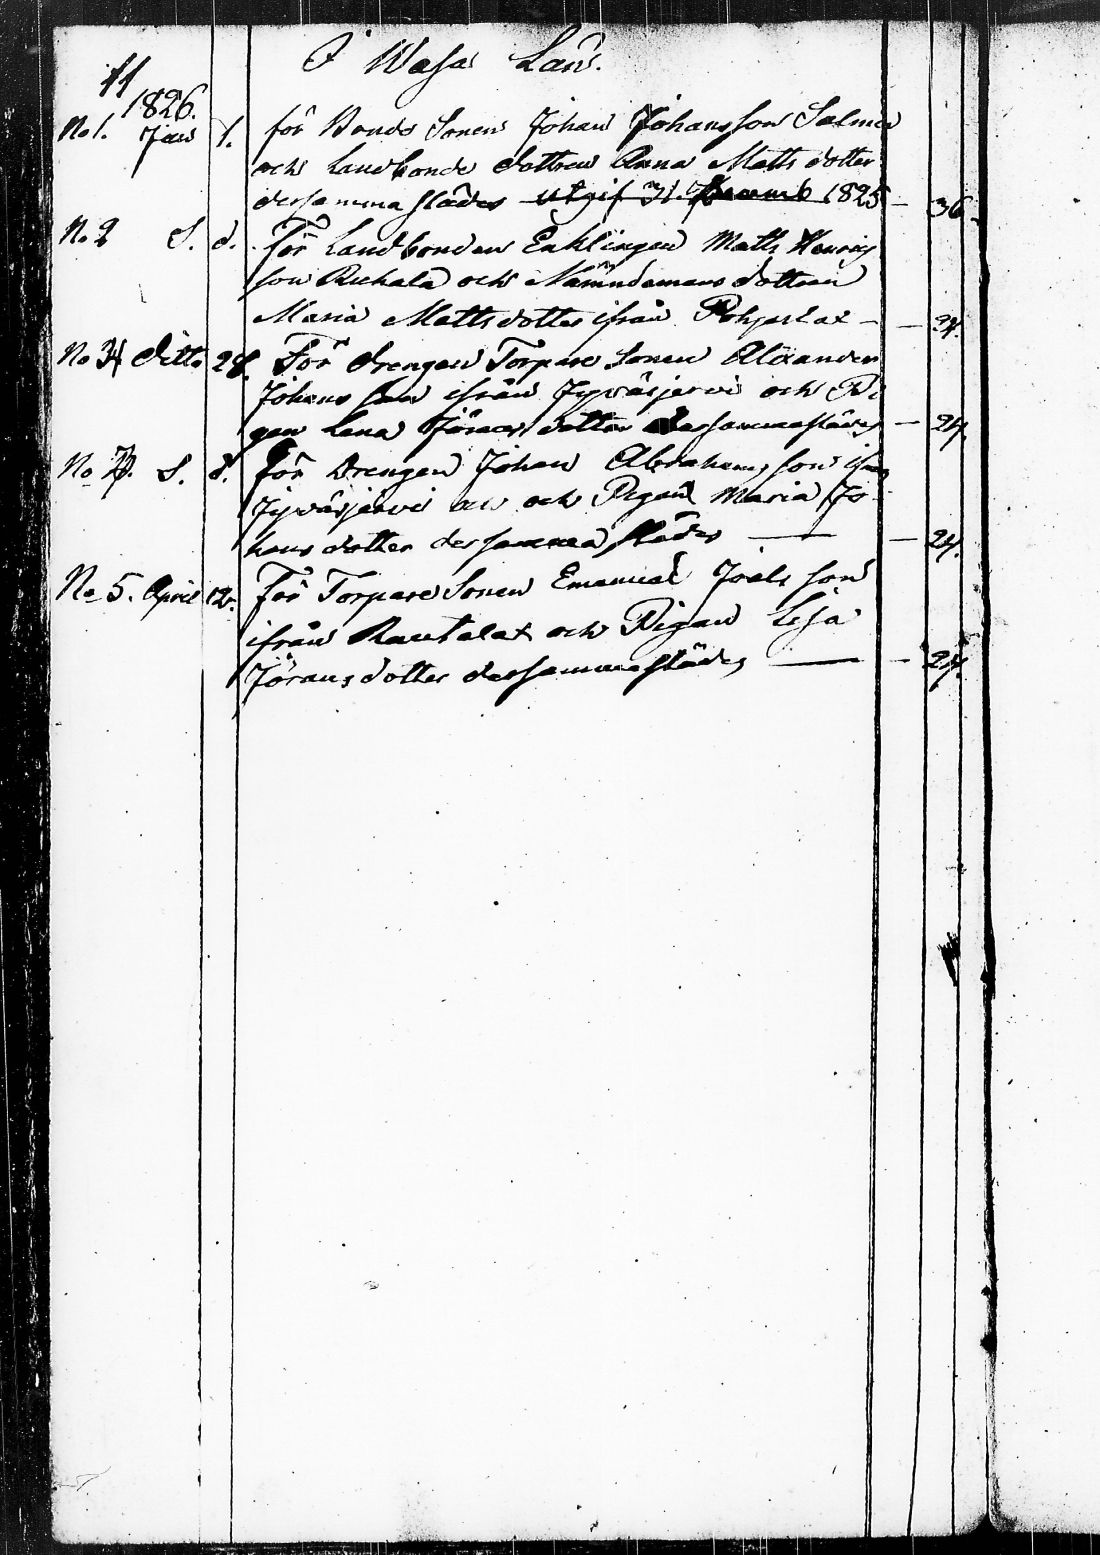 I Wasa Län.
11
1826.
No 1. Jan 1. för Bonde Sonen Johan Johansson Salmis
och Landbonde dottren Anna Matts dotter
dersamma städes utgif 31. Decemb 1825 — 36
No 2 S. d. För Landbonden Enklingen Matts Henrics
son Ruhala och Nämndemans dottren
Maria Mattsdotter ifrån Pohjaslax — — 24.
No 3 Ditto 28. För drengen Torpare Sonen Alexander
Johans son ifrån Jyväsjärvi och Pi
gan Lena Jörans dotter dersammastädes — 24.
No 4. S. d. För Drengen Johan Abrahams son ifrån
Jyväsjärvi och Pigan Maria Jo
hans dotter dersamma städes — — 24.
No 5. April 12. För Torpare Sonen Emanuel Joels son
ifrån Rautalax och Pigan Lisa
Jörans dotter dersammastädes — — 24.